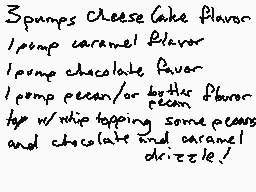 3 pumps cheese cake flavor
1 pump caramel flavor
1 pump chocolate favor
1 pump pecan/or butter pecan flavor
top w/ whip topping some pecans
and chocolate and caramel
drizzle!